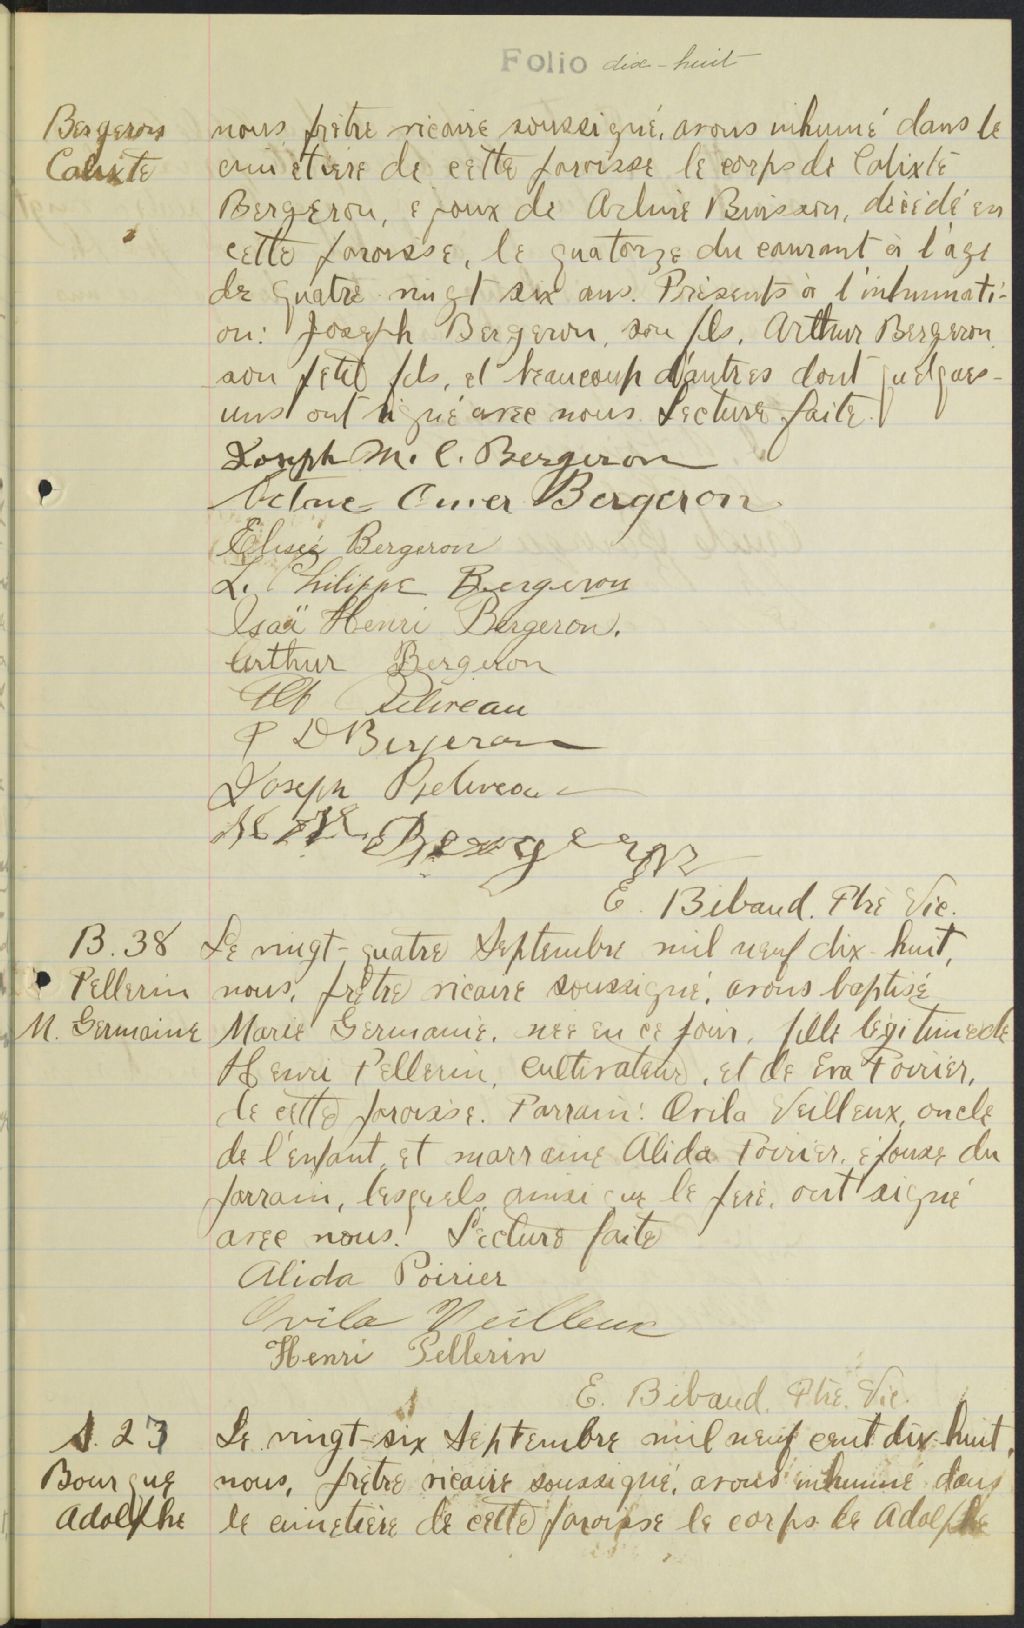 Folio dix-huit
Bergeron
Calixte
nous, prêtre vicaire soussigné, avons inhumé dans le
cimetière de cette paroisse le corps de Calixte
Bergeron, époux de Arline Buisson, décédé en
cette paroisse, le quatorze du courant à l'âge
de quatre vingt six ans. Présents à l'inhumati-
on: Joseph Bergeron, son fils, Arthur Bergeron,
son petit fils, et beaucoup d'autres dont quelques-
uns ont signé avec nous. Lecture faite.
Joseph M. C. Bergeron
Omer Bergeron
Elisée Bergeron
L. Philippe Bergeron
Isaï Henri Bergeron.
Arthur Bergeron
Béliveau
P D Bergeron
Joseph Beliveau
Bergeron
E. Bibaud. Ptre Vic.
B. 38
Pellerin
M. Germaine
Le vingt-quatre Septembre mil neuf dix-huit,
nous, prêtre vicaire soussigné, avons baptisé
Marie Germaine, née en ce jour, fille légitime de
Henri Pellerin, cultivateur, et de Eva Poirier,
de cette paroisse. Parrain: Ovila Veilleux, oncle
de l'enfant, et marraine Alida Poirier, épouse du
parrain, lesquels, ainsi que le père, ont signé
avec nous. Lecture faite
Alida Poirier
Ovila Veilleux
Henri Pellerin
E. Bibaud. Ptre. Vic.
S. 23
Bourque
Adolphe
Le vingt-six Septembre mil neuf cent dix-huit,
nous, prêtre vicaire soussigné, avons inhumé dans
le cimetière de cette paroisse le corps de Adolphe